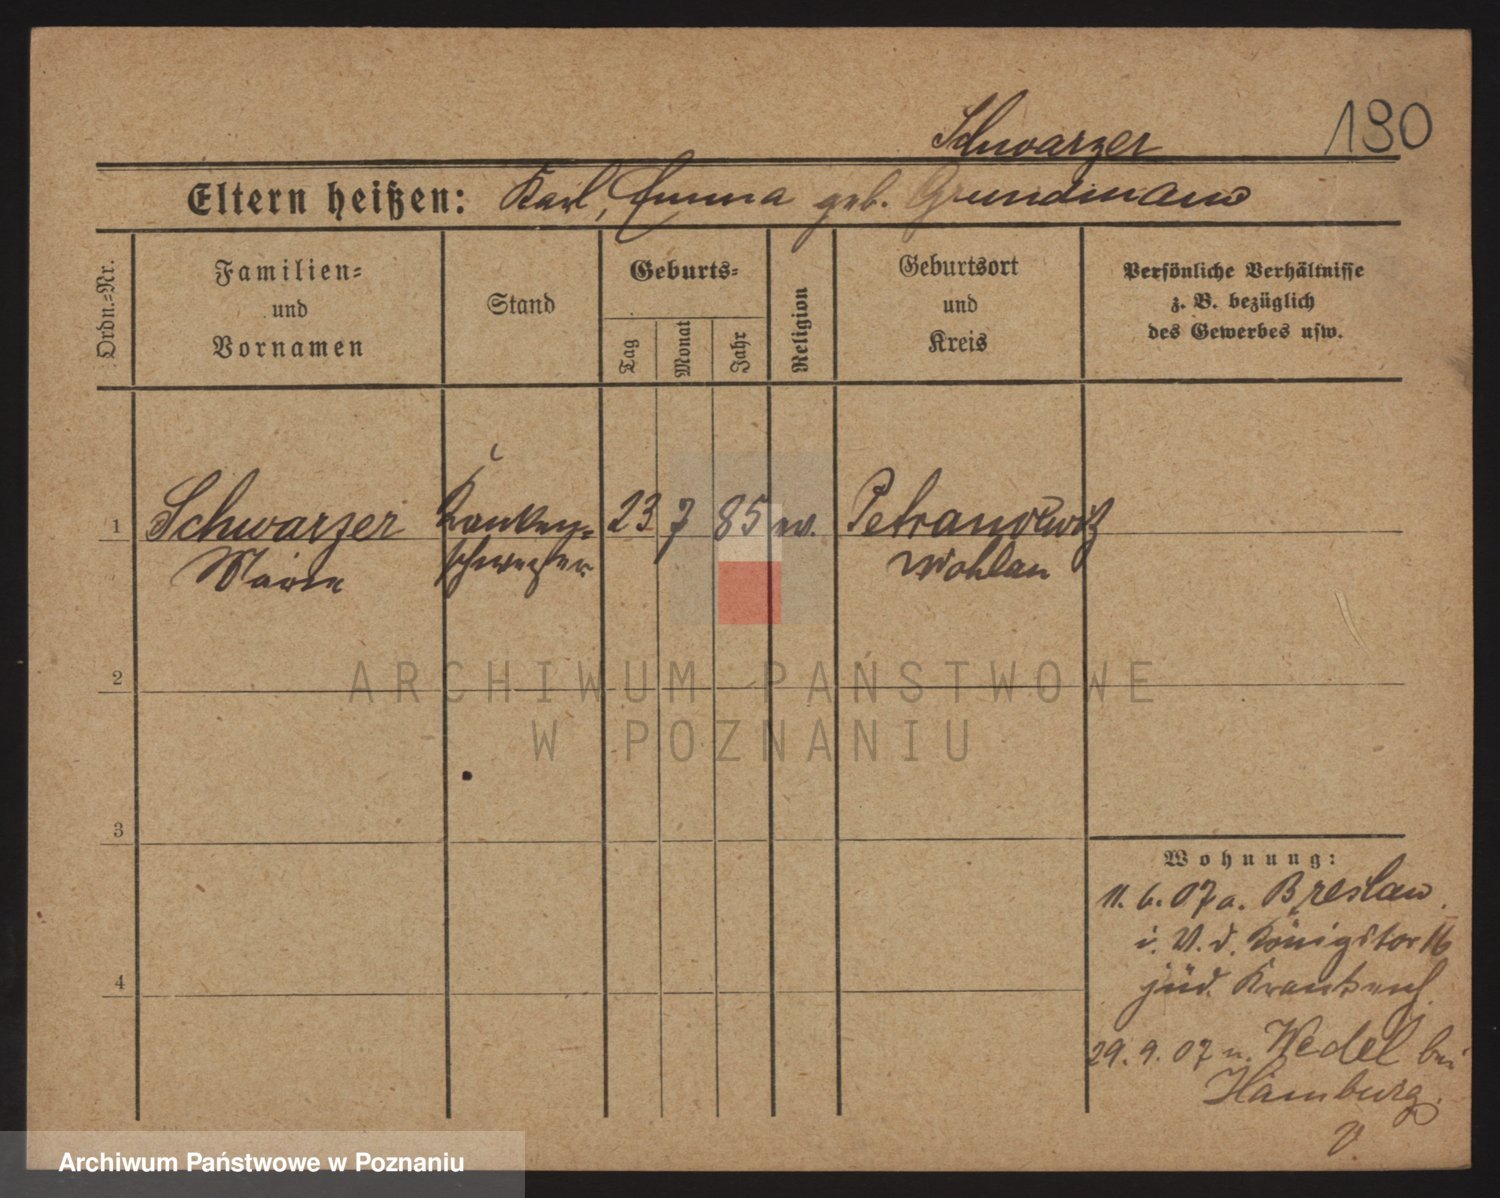 Schwarzer
190
Eltern heißen: Karl, Emma geb. Grundmann
Ordn.-Nr.
Familien-
und
Vornamen
Stand
Geburts-
Tag
Monat
Jahr
Religion
Geburtsort
und
Kreis
Persönliche Verhältnisse
z. B. bezüglich
des Gewerbes usw.
1 Schwarzer Kranken- 23 7 85 ev.
Marie schwester Wohlau
2
3
4
Wohnung:
11. 6. 07 a. Breslau.
i. V. d. Königstor 16
jüd. Krankenh.
29. 9. 07 n. Wedel bei
Hamburg.
ARCHIWUM PAŃSTWOWE
W POZNANIU
Archiwum Państwowe w Poznaniu